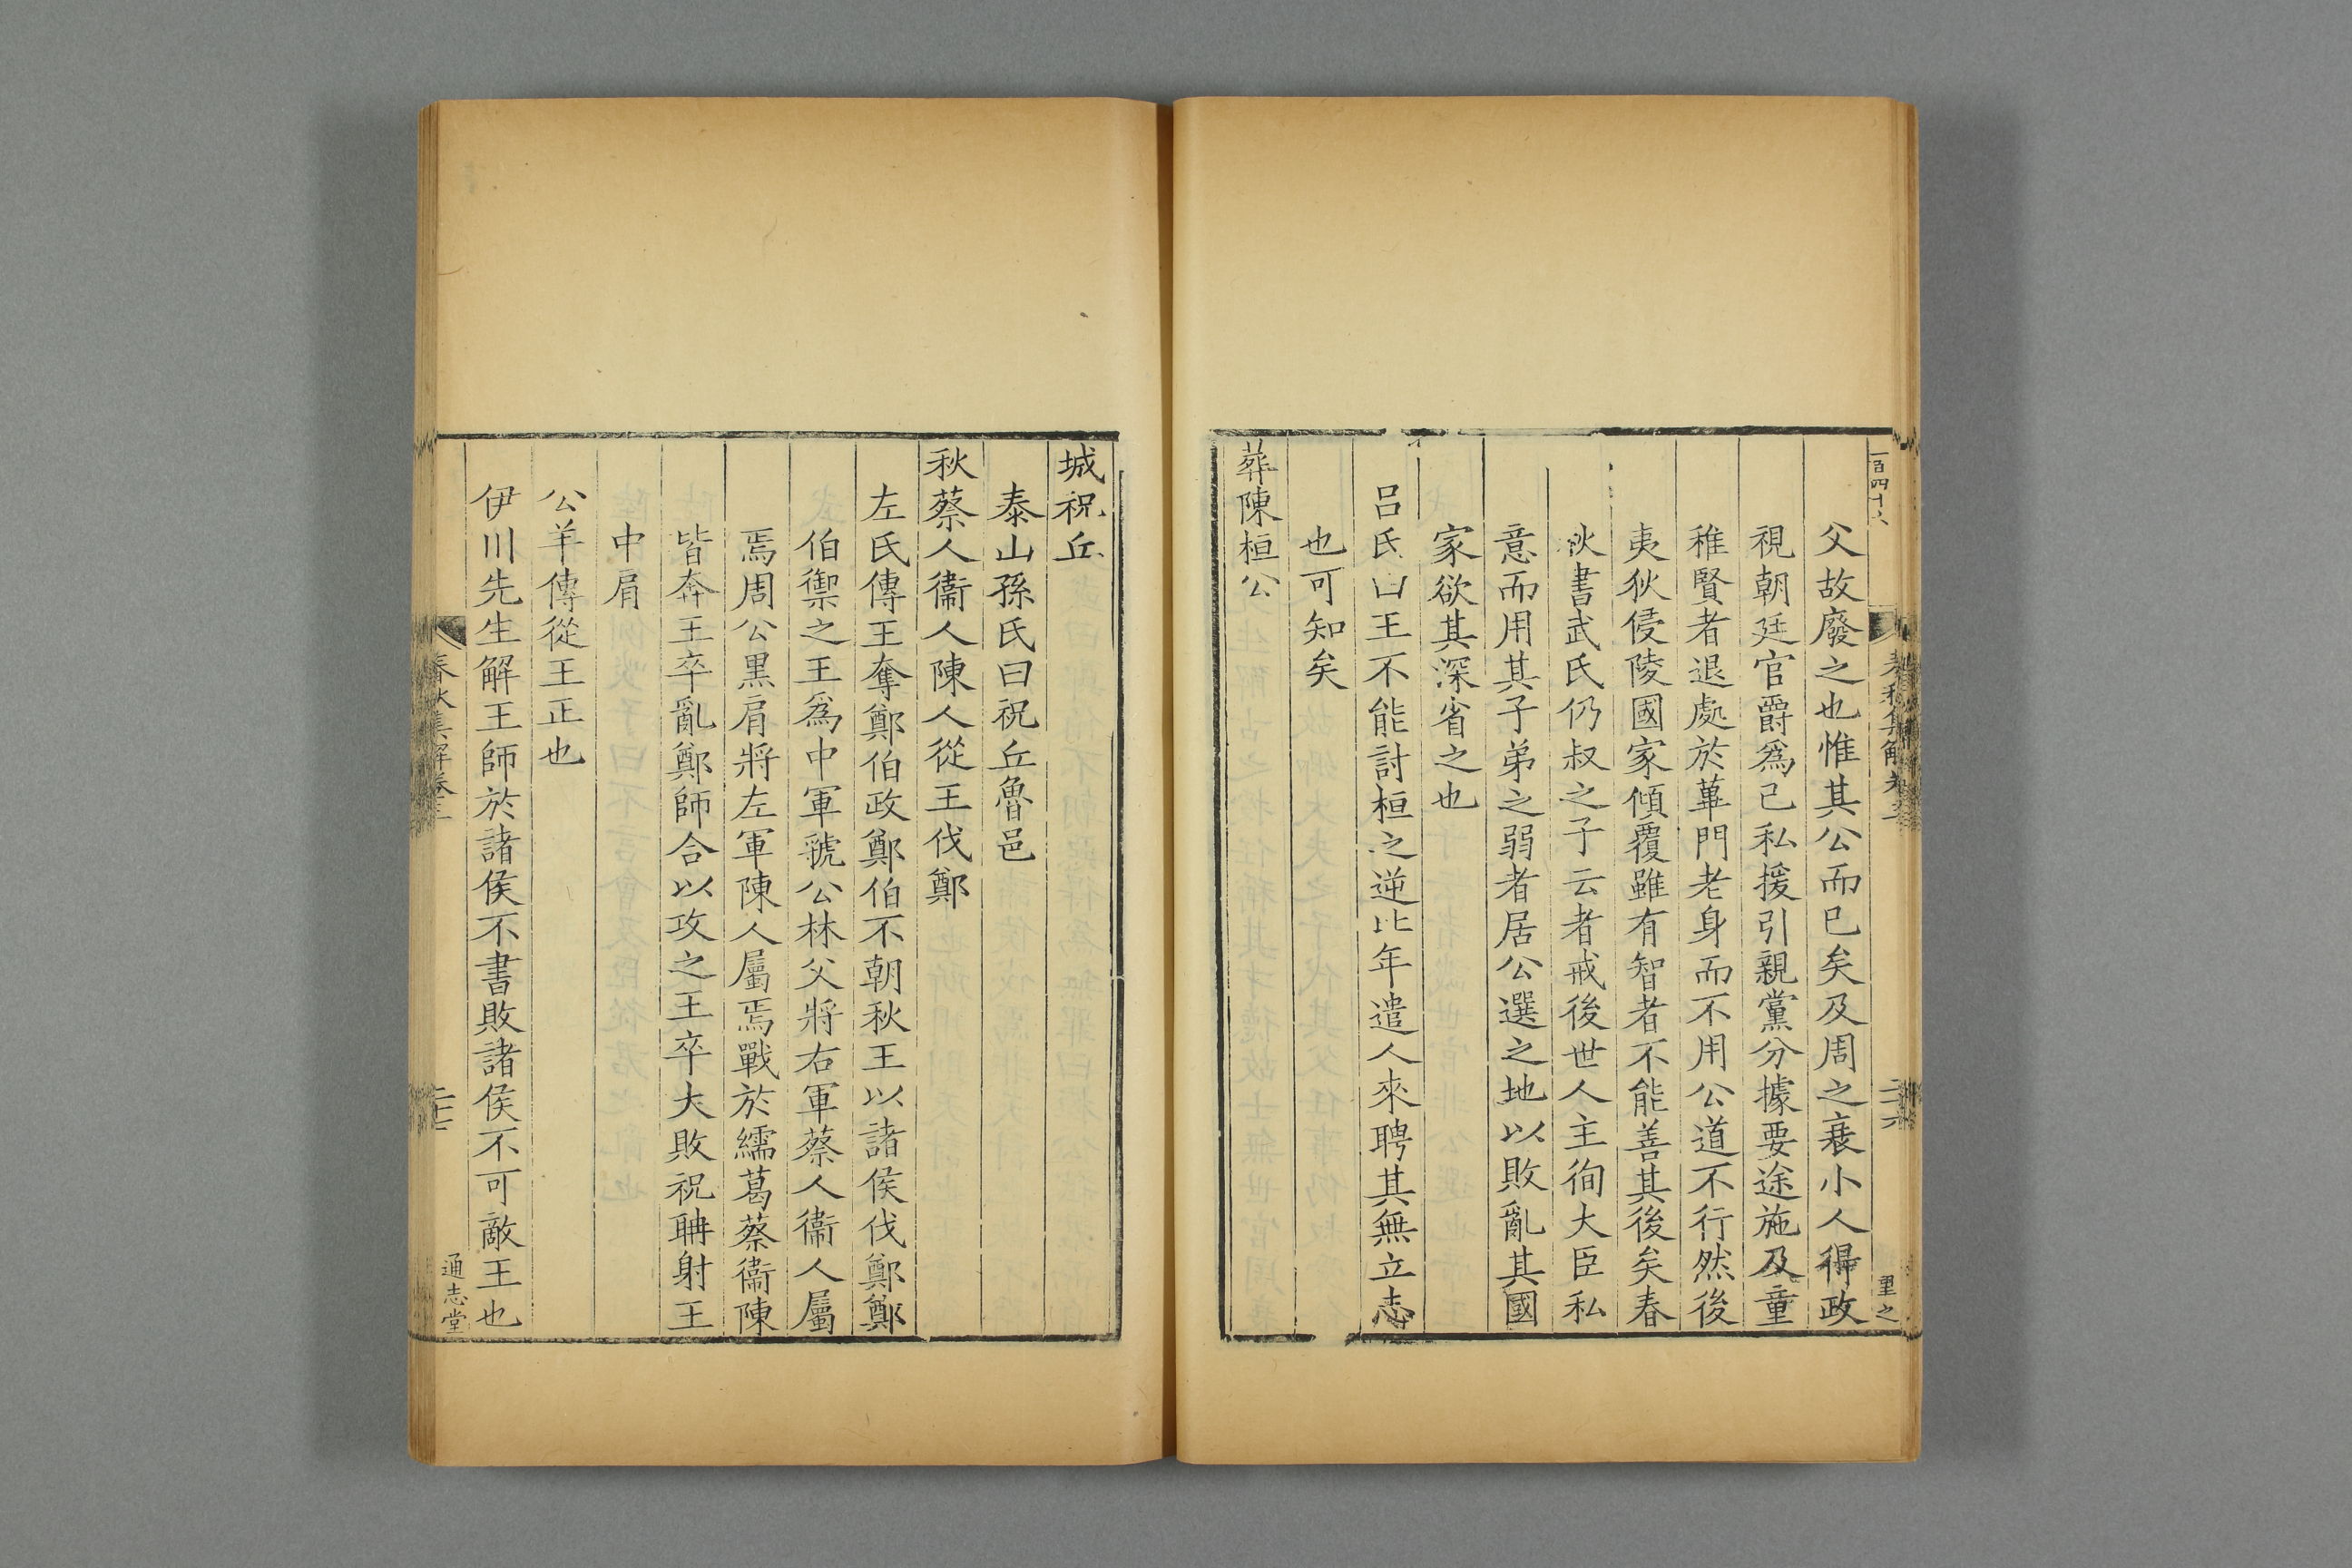 一百四十六
春秋集解卷三
二十六
重之
父故廢之也惟其公而已矣及周之衰小人得政
視朝廷官爵爲己私援引親黨分據要途施及童
稚賢者退處於蓽門老身而不用公道不行然後
夷狄侵陵國家傾覆雖有智者不能善其後矣春
秋書武氏仍叔之子云者戒後世人主徇大臣私
意而用其子弟之弱者居公選之地以敗亂其國
家欲其深省之也
呂氏曰王不能討桓之逆比年遣人來聘其無立志
也可知矣
葬陳桓公
城祝丘
泰山孫氏曰祝丘魯邑
秋蔡人衞人陳人從王伐鄭
左氏傳王奪鄭伯政鄭伯不朝秋王以諸侯伐鄭鄭
伯禦之王爲中軍虢公林父將右軍蔡人衞人屬
焉周公黑肩將左軍陳人屬焉戰於繻葛蔡衞陳
皆奔王卒亂鄭師合以攻之王卒大敗祝聃射王
中肩
公羊傳從王正也
伊川先生解王師於諸侯不書敗諸侯不可敵王也
春秋集解卷三
二十七
通志堂